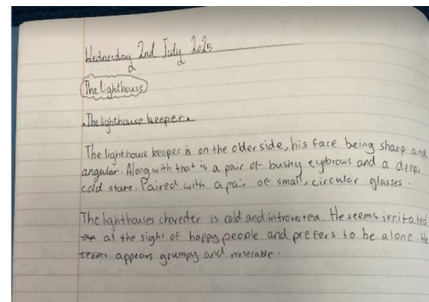 Wednesday 2nd July 2025
The lighthouse
The lighthouse keeper.
The lighthouse keeper is on the older side, his face being sharp and
angular. Along with that is a pair of bushy eyebrows and a deep,
cold stare. Paired with a pair of small, circular glasses.
The lighthouses charecter is cold and introverted. He seems irritated
at the sight of happy people and prefers to be alone. He
seems appears grumpy and miserable.